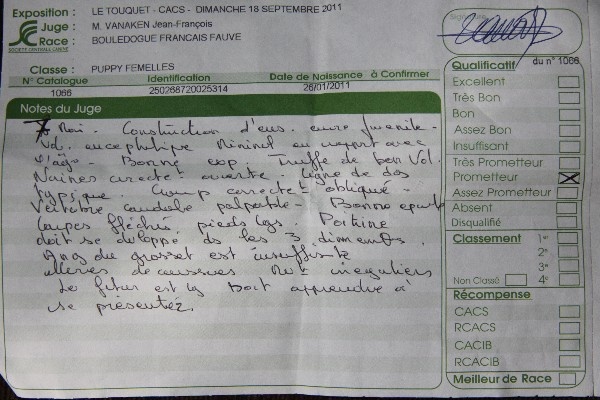 Exposition : LE TOUQUET - CACS - DIMANCHE 18 SEPTEMBRE 2011
Juge : M. VANAKEN Jean-François
Race : BOULEDOGUE FRANCAIS FAUVE
SOCIETE CENTRALE CANINE
Classe : PUPPY FEMELLES
N° Catalogue Identification Date de Naissance à Confirmer
1066 250268720025314 26/01/2011
Notes du Juge
7 Moi. Construction d'ens. encore juvenile.
Vol. encephalique minimal en rapport avec
l'âge. Bonne exp. Truffe de bon Vol.
Narines correct ouverte. Ligne de dos
typique. Croup correctet oblique.
Vertebre caudale palpable. Bonne
pieds Poitrine
doit se ds les 3 dimensions.
du grasset est insuffisante
allures de
Le futur est là Doit apprendre à
se présenter.
Signature
Qualificatif du n° 1066
Excellent
Très Bon
Bon
Assez Bon
Insuffisant
Très Prometteur
Prometteur X
Assez Prometteur
Absent
Disqualifié
Classement 1er
2e
3e
Non Classé 4e
Récompense
CACS
RCACS
CACIB
RCACIB
Meilleur de Race